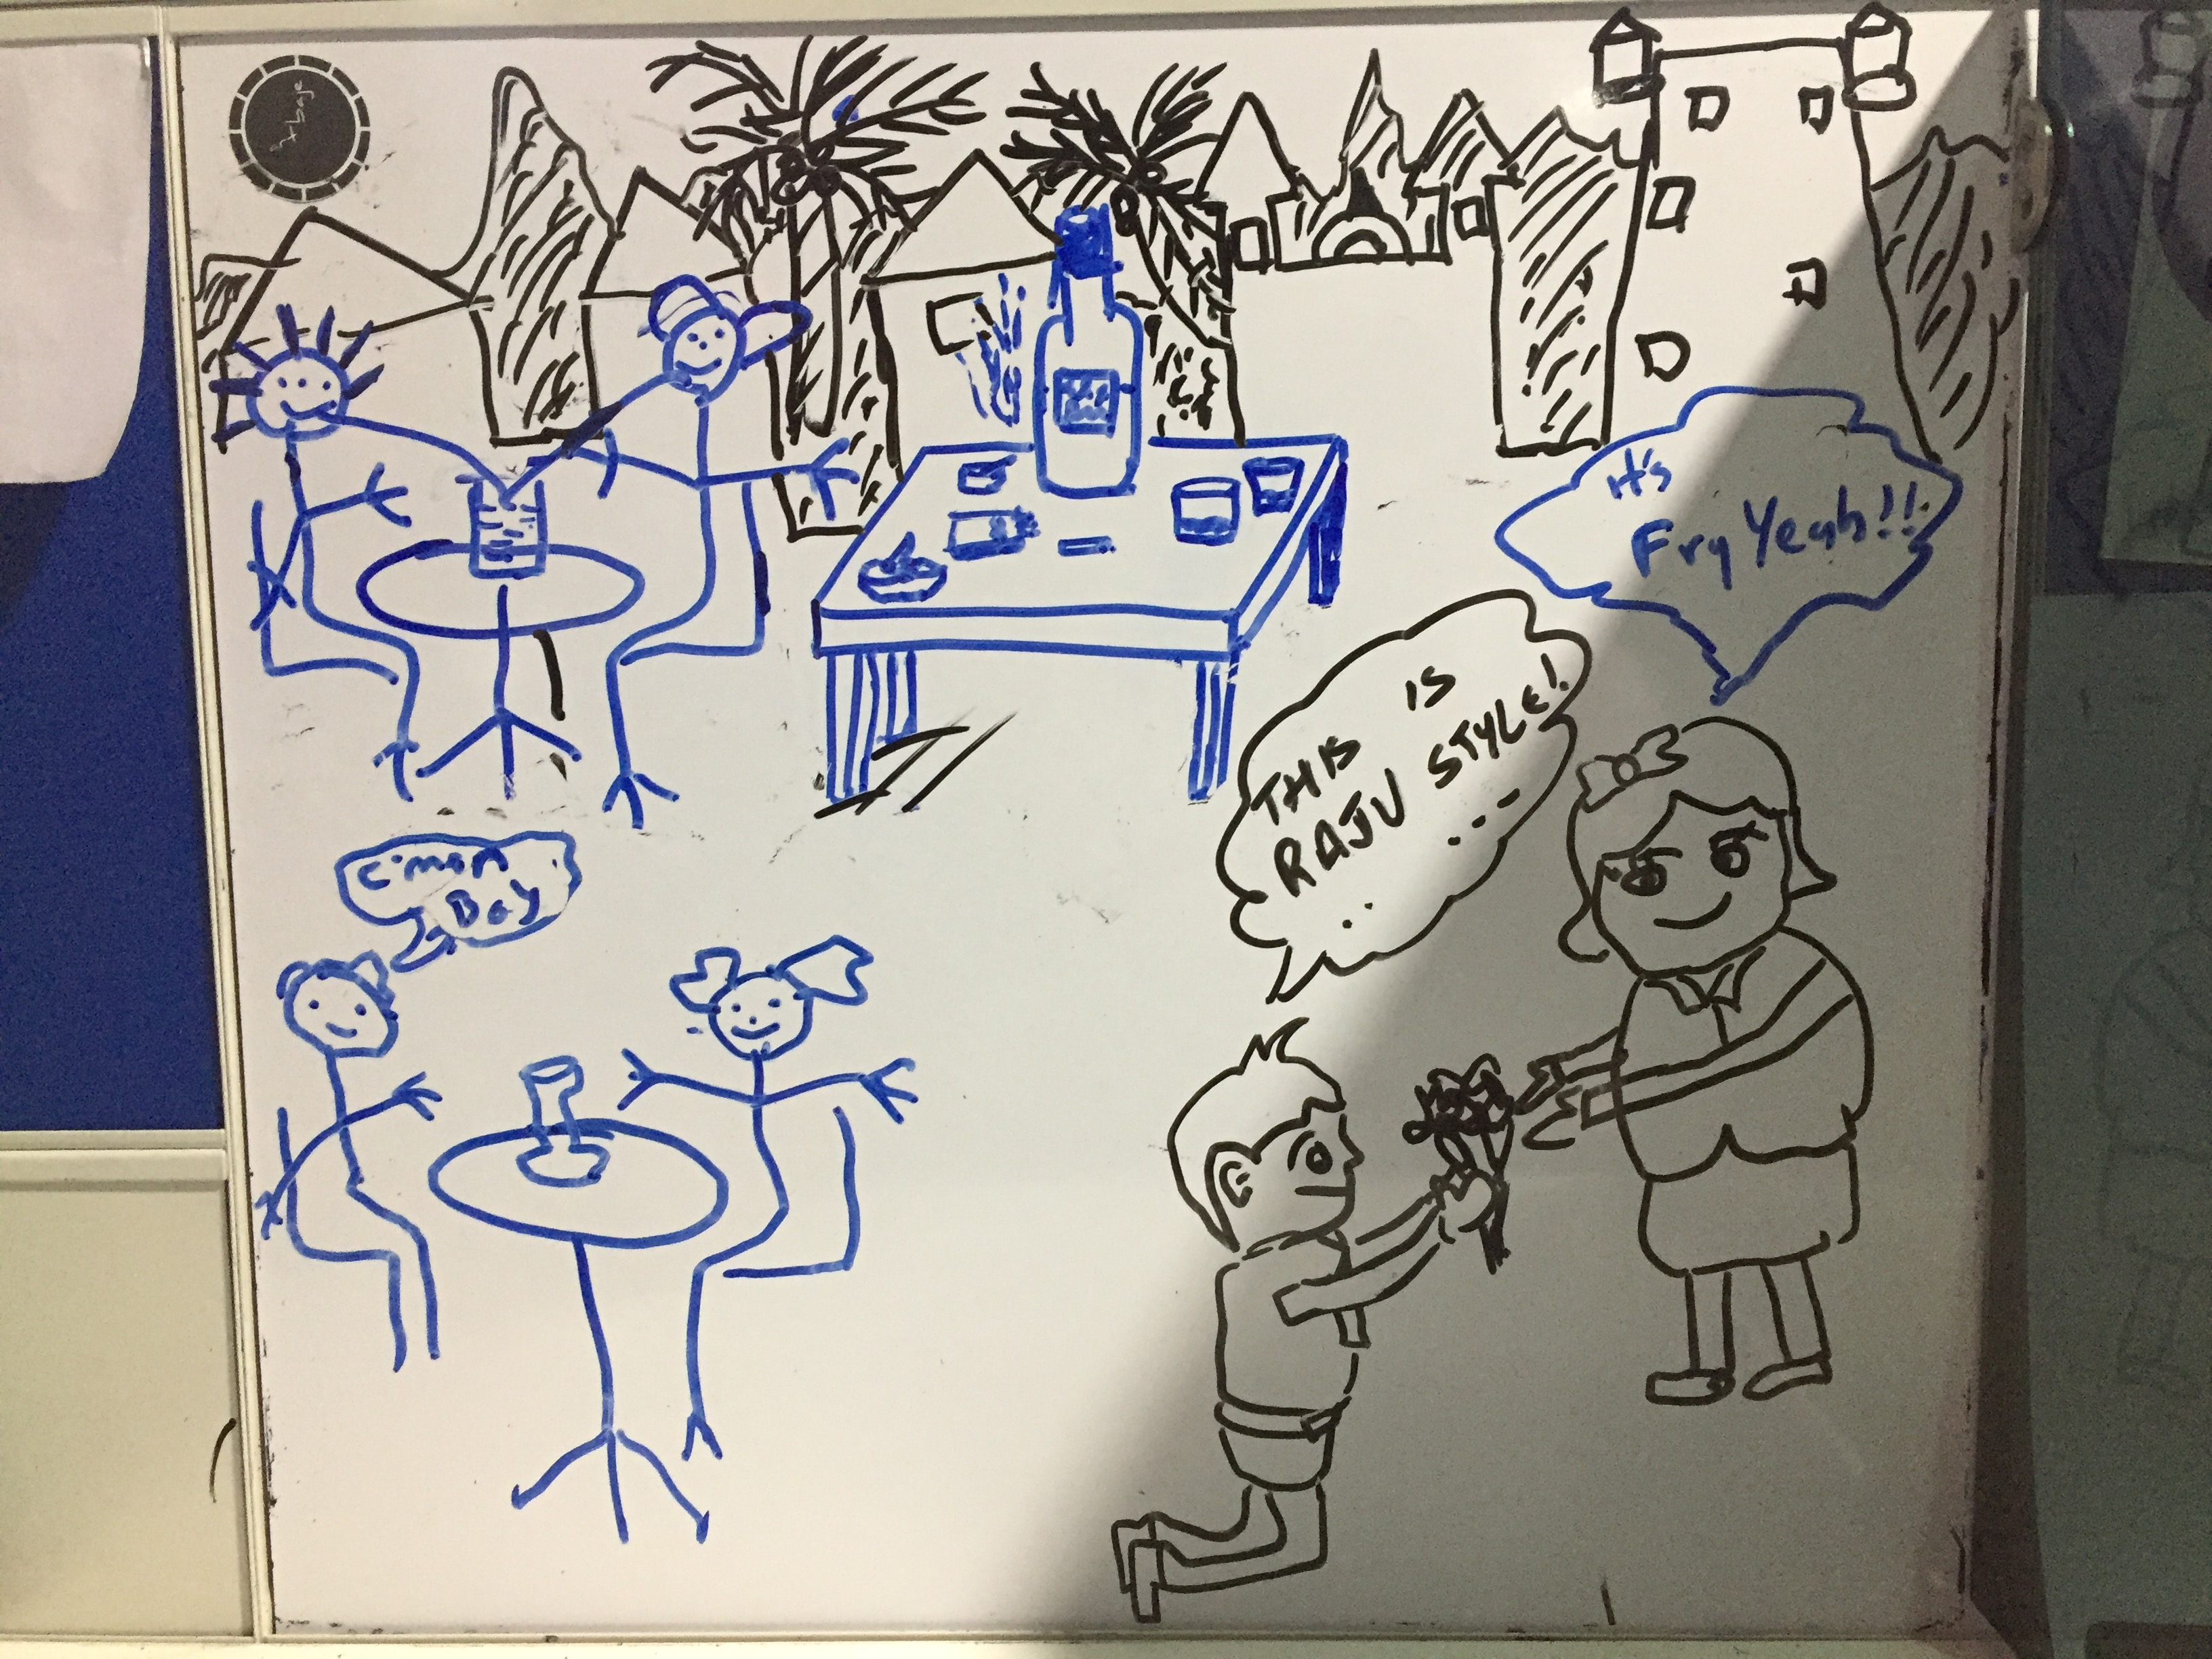 It's
Fry Yeah!!
THIS IS
RAJU STYLE!
C'mon
Boy